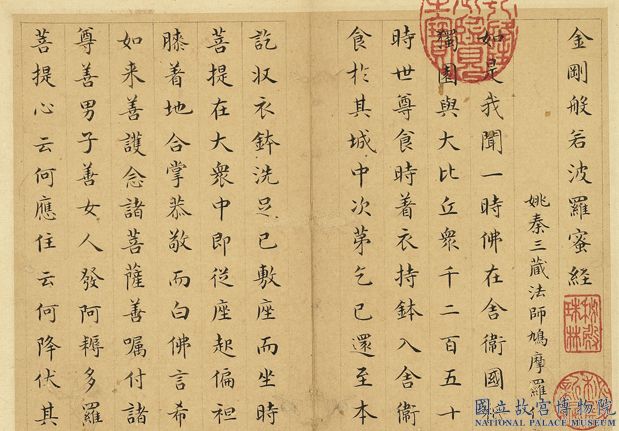 金剛般若波羅蜜経
姚秦三藏法師鳩摩羅
如是我聞一時佛在舍衛國
獨園與大比丘衆千二百五十
時世尊食時着衣持鉢入舍衛
食於其城中次苐乞已還至本
訖収衣鉢洗足已敷座而坐時
菩提在大衆中即從座起偏袒
膝着地合掌恭敬而白佛言希
如来善護念諸菩薩善嘱付諸
尊善男子善女人發阿耨多羅
菩提心云何應住云何降伏其
國立故宮博物院
NATIONAL PALACE MUSEUM